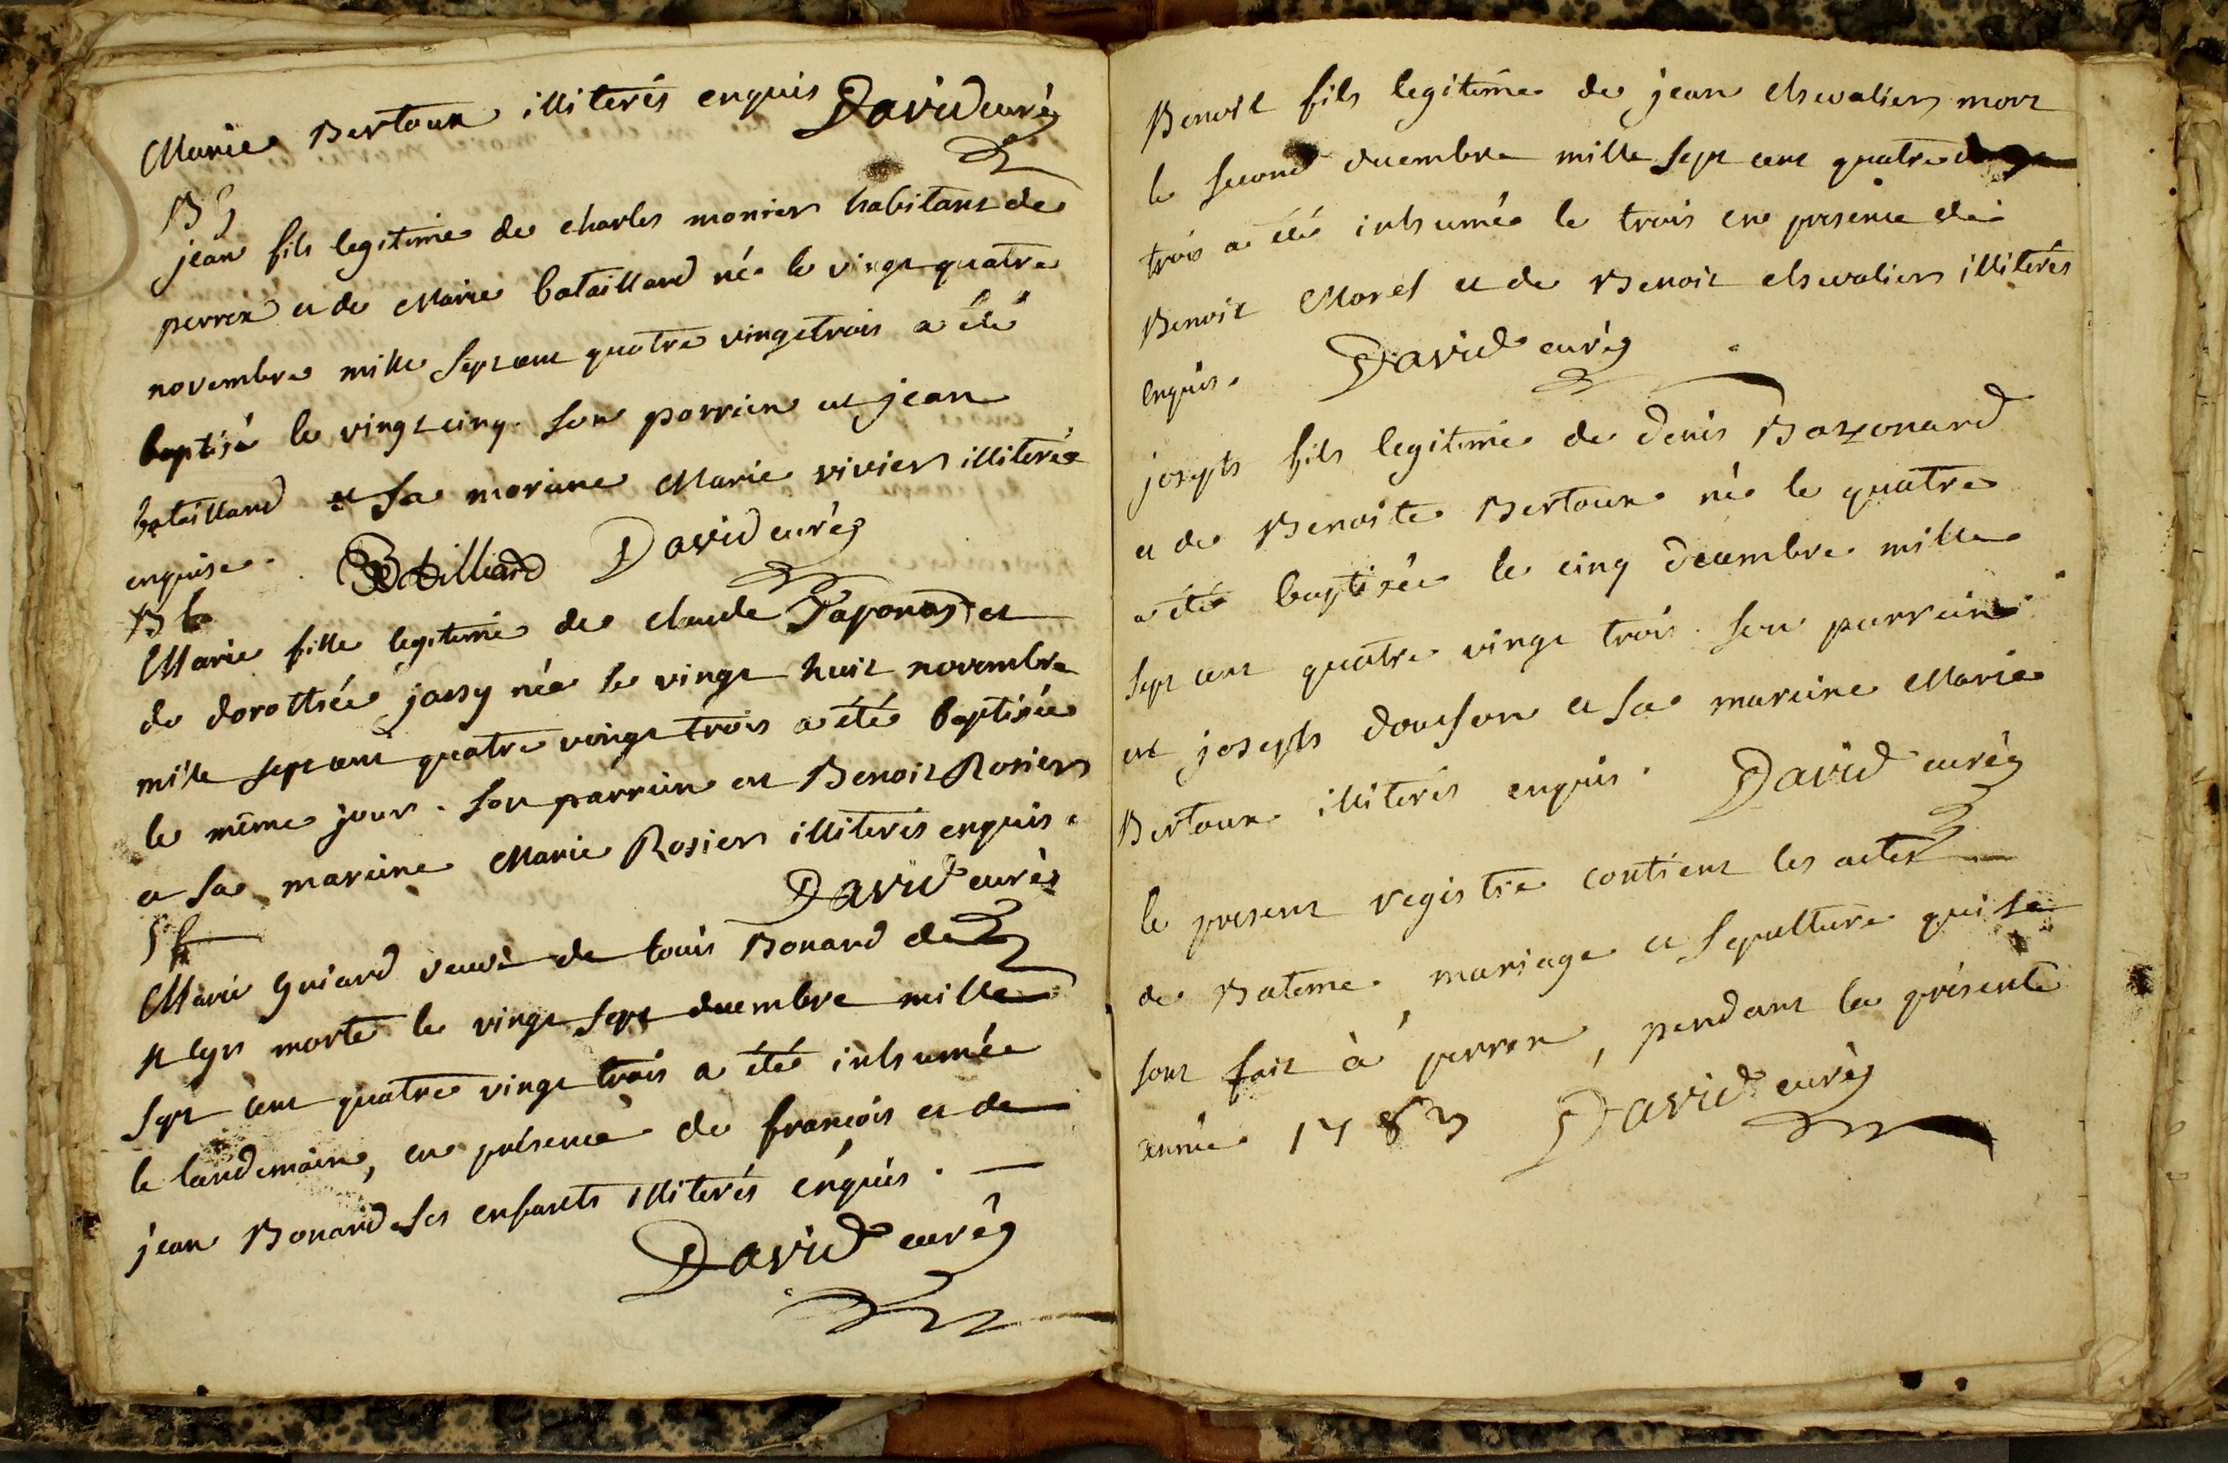 Marie Bertoux illiterés enquis David curé
B g
jean fils legitime de charles monier habitant de
perren et de Marie bataillard né le vingt quatre
novembre mille sept cent quatre vingt trois a été
baptisé le vingt cinq. son parrien est jean
bataillard et sa moraine Marie vivier illiterée
enquise. Batilliard David curé
B f
Marie fille legitime de claude Paponas et
de dorothée jassy née le vingt huit novembre
mille sept cent quatre vingt trois a été baptisée
le même jour. son parrein est Benoit Rosier
et sa mareine Marie Rosier illiterés enquis.
David curé
S f
Marie guiard veuve de louis Bonard de
morte le vingt sept decembre mille
sept cent quatre vingt trois a été inhumée
le landemain, en présence de françois et de
jean Bonard ses enfants illiterés enquis.
David curé
Benoit fils legitime de jean chevalier mort
le second decembre mille sept cent quatre
trois a été inhumé le trois en presence de
Benoit Morel et de Benoit chevalier illiterés
enquis. David curé
joseph fils legitime de denis Bazonard
et de Benoite Bertoux né le quatre
a été baptisée le cinq decembre mille
sept cent quatre vingt trois. son parrein
est joseph douson et sa mareine Marie
Bertoux illiterés enquis. David curé
le present registre contient les actes
de Bateme mariage et sepulture qui se
sont fait à perren, pendant la présente
année 1783 David curé